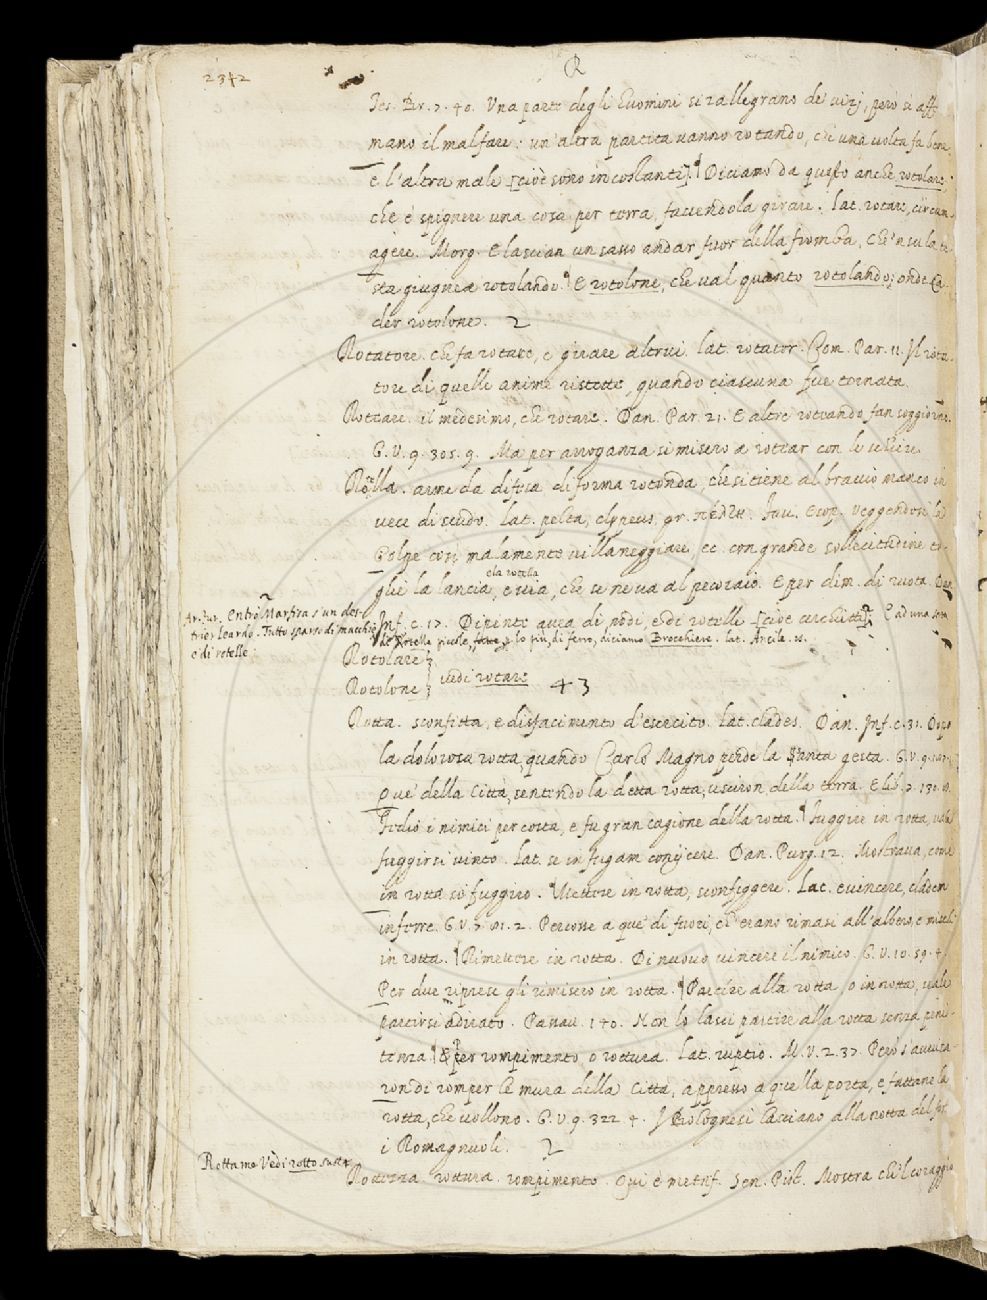 2342
R
Tes. Br. 7. 40. Una parte degli huomini si rallegrano de' vizj, però si aff
mano il malfare: un'altra partita vanno rotando, che una volta fa bene
e l'altra male [cioè sono incostanti]. Diciamo da questo anche rotolare
che è spignere una cosa per terra, facendola girare. Lat. rotare, circum
agere. Morg. E lascian un sasso andar fuor della fromba, Ch'n su la te
sta giugnea rotolando. E rotolone, che val quanto rotolando; onde Ca
der rotolone. 2
Rotatore. che fa rotare, e girare altrui. lat. rotator. Com. Par. 11. Il rota
tore di quelle anime ristette, quando ciascuna fue tornata.
Roteare. il medesimo, che rotare. Dan. Par. 21. E altre roteando fan soggiorno.
G. V. 9. 305. 9. Ma per arroganza si misero a rotear con le schiere
Rotella. arme da difesa di forma rotonda, che si tiene al braccio manco in
vece di scudo. Lat. pelta, clypeus, gr. πέλτη. Fav. Esop. Veggendosi la
Golpe così malamente villaneggiare, ec. con grande sollecitudine to
glie la lancia, e via, che se ne va al pecoraio. E per dim. di ruota. Dan
e la rotella
Inf. c. 17. Dipinte avea di nodi, e di rotelle [cioè cerchietti]. E ad una sorta
Ar. Fur. Entrò Marfisa s'un des-
trier leardo. Tutto sparso di macchie
e di rotelle
di Rotella picole, e lo più, di ferro, diciamo Brocchiere. lat. Ancile. is.
Rotolare
Rotolone } vedi rotare 43
Rotta. sconfitta, e disfacimento d'esercito. Lat. clades. Dan. Inf. c. 31. Dopo
la dolorosa rotta, quando Carlo Magno perdè la Santa gesta. G. V. 9.
Que' della Città, sentendo la detta rotta, usciron della terra. E lib. 7. 130.
Fedìo i nimici per costa, e fu gran cagione della rotta. Fuggire in rotta, vale
fuggirsi vinto. Lat. se in fugam conijcere. Dan. Purg. 12. Mostrava, come
in rotta si fuggiro. Mettere in rotta, sconfiggere. Lat. evincere, cladem
inferre. G. V. 7. 101. 2. Percosse a que' di fuori, ch'erano rimasi all'albero, e miseli
in rotta. Rimettere in rotta. Di nuovo vincere il nimico. G. V. 10. 59. 4.
Per due riprese gli rimisero in rotta. Partire alla rotta, o in rotta, vale
partirsi adirato. Passav. 140. Non lo lasci partire alla rotta senza peni-
tenza. E per rompimento, o rottura. Lat. ruptio. M. V. 2. 37. Però s'avvisa-
ron di romper le mura della Città, appresso a quella porta, e fattane la
rotta, che vollono. G. V. 9. 322. 4. I Bolognesi lasciano alla rotta del
i Romagnuoli. 2
Rottame Vedi rotto sust.
Rottezza. rottura. rompimento. Qui è metaf. Sen. Pist. Mostra ch'l coraggio